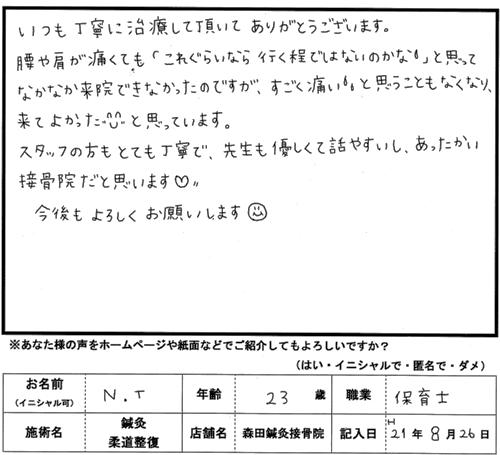 いつも丁寧に治療して頂いて ありがとうございます。
腰や肩が痛くても「これぐらいなら 行く程ではないのかな!」と思って
なかなか来院できなかったのですが、すごく痛い!!と思うこともなくなり、
来てよかった^^と思っています。
スタッフの方もとても丁寧で、先生も優しくて話やすいし、あったかい
接骨院だと思います♡〃
今後も よろしく お願いします☺
※あなた様の声をホームページや紙面などでご紹介してもよろしいですか?
(はい・イニシャルで・匿名で・ダメ)
お名前 (イニシャル可) N.T 年齢 23 歳 職業 保育士
施術名 鍼灸 柔道整復 店舗名 森田鍼灸接骨院 記入日 H21年 8月26日